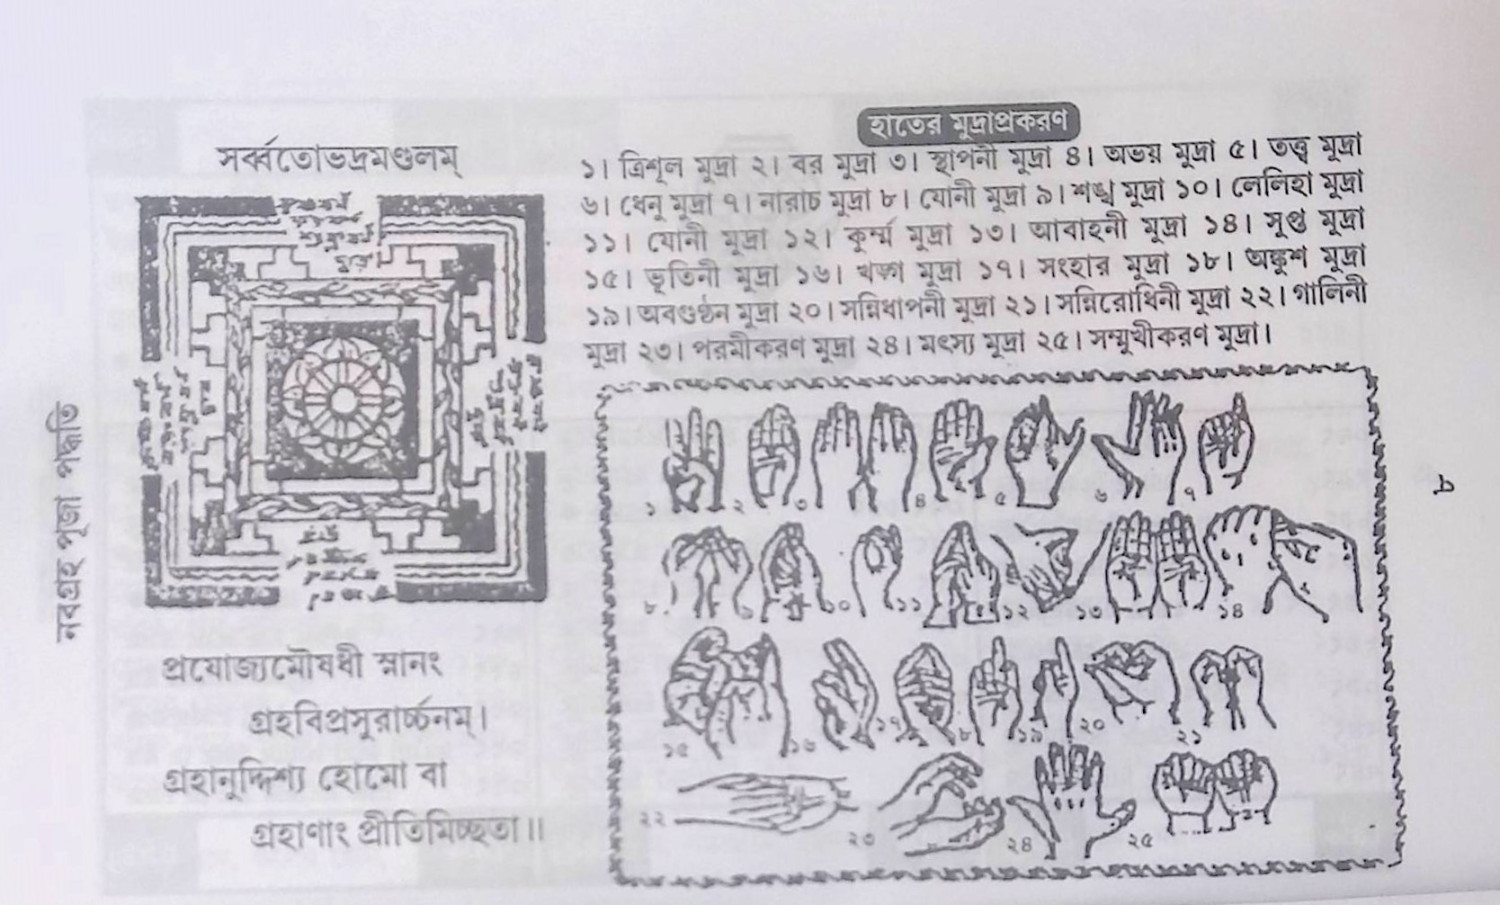 নবগ্রহ পূজা পদ্ধতি
সর্ব্বতোভদ্রমণ্ডলম্
প্রযোজ্যমৌষধী স্নানং
গ্রহবিপ্রসুরার্চ্চনম্।
গ্রহানুদ্দিশ্য হোমো বা
গ্রহাণাং প্রীতিমিচ্ছতা॥
হাতের মুদ্রাপ্রকরণ
১। ত্রিশূল মুদ্রা ২। বর মুদ্রা ৩। স্থাপনী মুদ্রা ৪। অভয় মুদ্রা ৫। তত্ত্ব মুদ্রা
৬। ধেনু মুদ্রা ৭। নারাচ মুদ্রা ৮। যোনী মুদ্রা ৯। শঙ্খ মুদ্রা ১০। লেলিহা মুদ্রা
১১। যোনী মুদ্রা ১২। কূর্ম্ম মুদ্রা ১৩। আবাহনী মুদ্রা ১৪। সুপ্ত মুদ্রা
১৫। ভূতিনী মুদ্রা ১৬। খড়্গ মুদ্রা ১৭। সংহার মুদ্রা ১৮। অঙ্কুশ মুদ্রা
১৯। অবগুণ্ঠন মুদ্রা ২০। সন্নিধাপনী মুদ্রা ২১। সন্নিরোধিনী মুদ্রা ২২। গালিনী
মুদ্রা ২৩। পরমীকরণ মুদ্রা ২৪। মৎস্য মুদ্রা ২৫। সম্মুখীকরণ মুদ্রা।
১ ২ ৩ ৪ ৫ ৬ ৭
৮ ৯ ১০ ১১ ১২ ১৩ ১৪
১৫ ১৬ ১৭ ১৮ ১৯ ২০ ২১
২২ ২৩ ২৪ ২৫